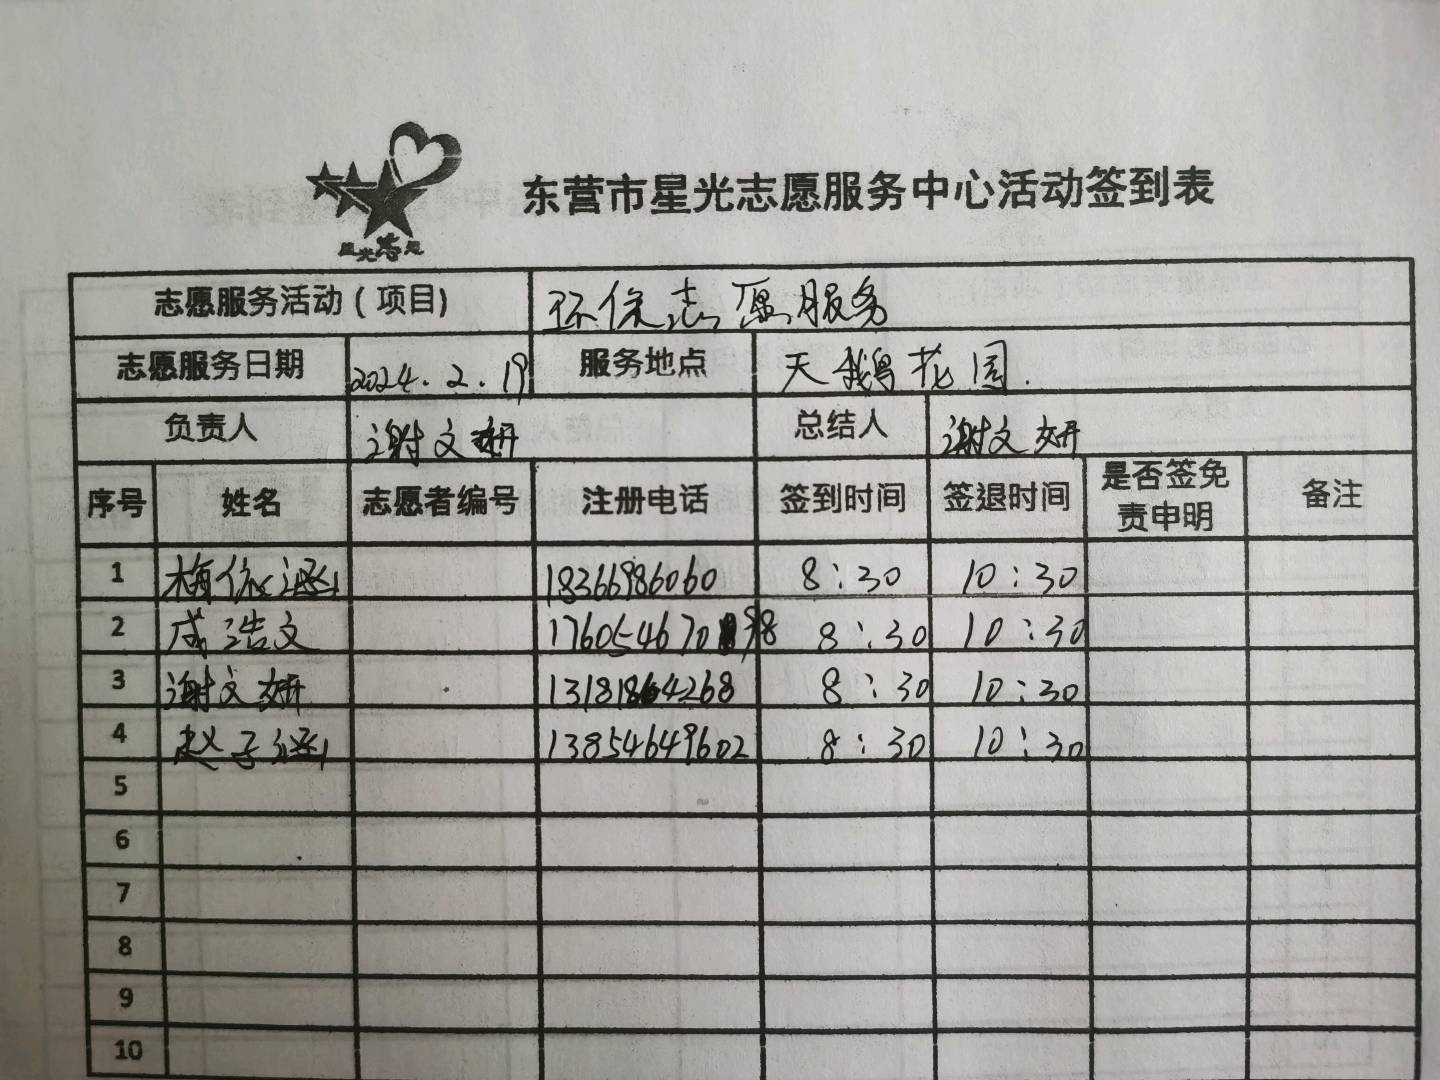 星光志愿
东营市星光志愿服务中心活动签到表
志愿服务活动(项目) 环保志愿服务
志愿服务日期 2024.2.19 服务地点 天鹅花园.
负责人 谢文妍 总结人 谢文妍
序号 姓名 志愿者编号 注册电话 签到时间 签退时间 是否签免责申明 备注
1 梅依涵 18366986060 8:30 10:30
2 成浩文 8:30 10:30
3 谢文妍 13181864268 8:30 10:30
4 赵子涵 13854649602 8:30 10:30
5
6
7
8
9
10